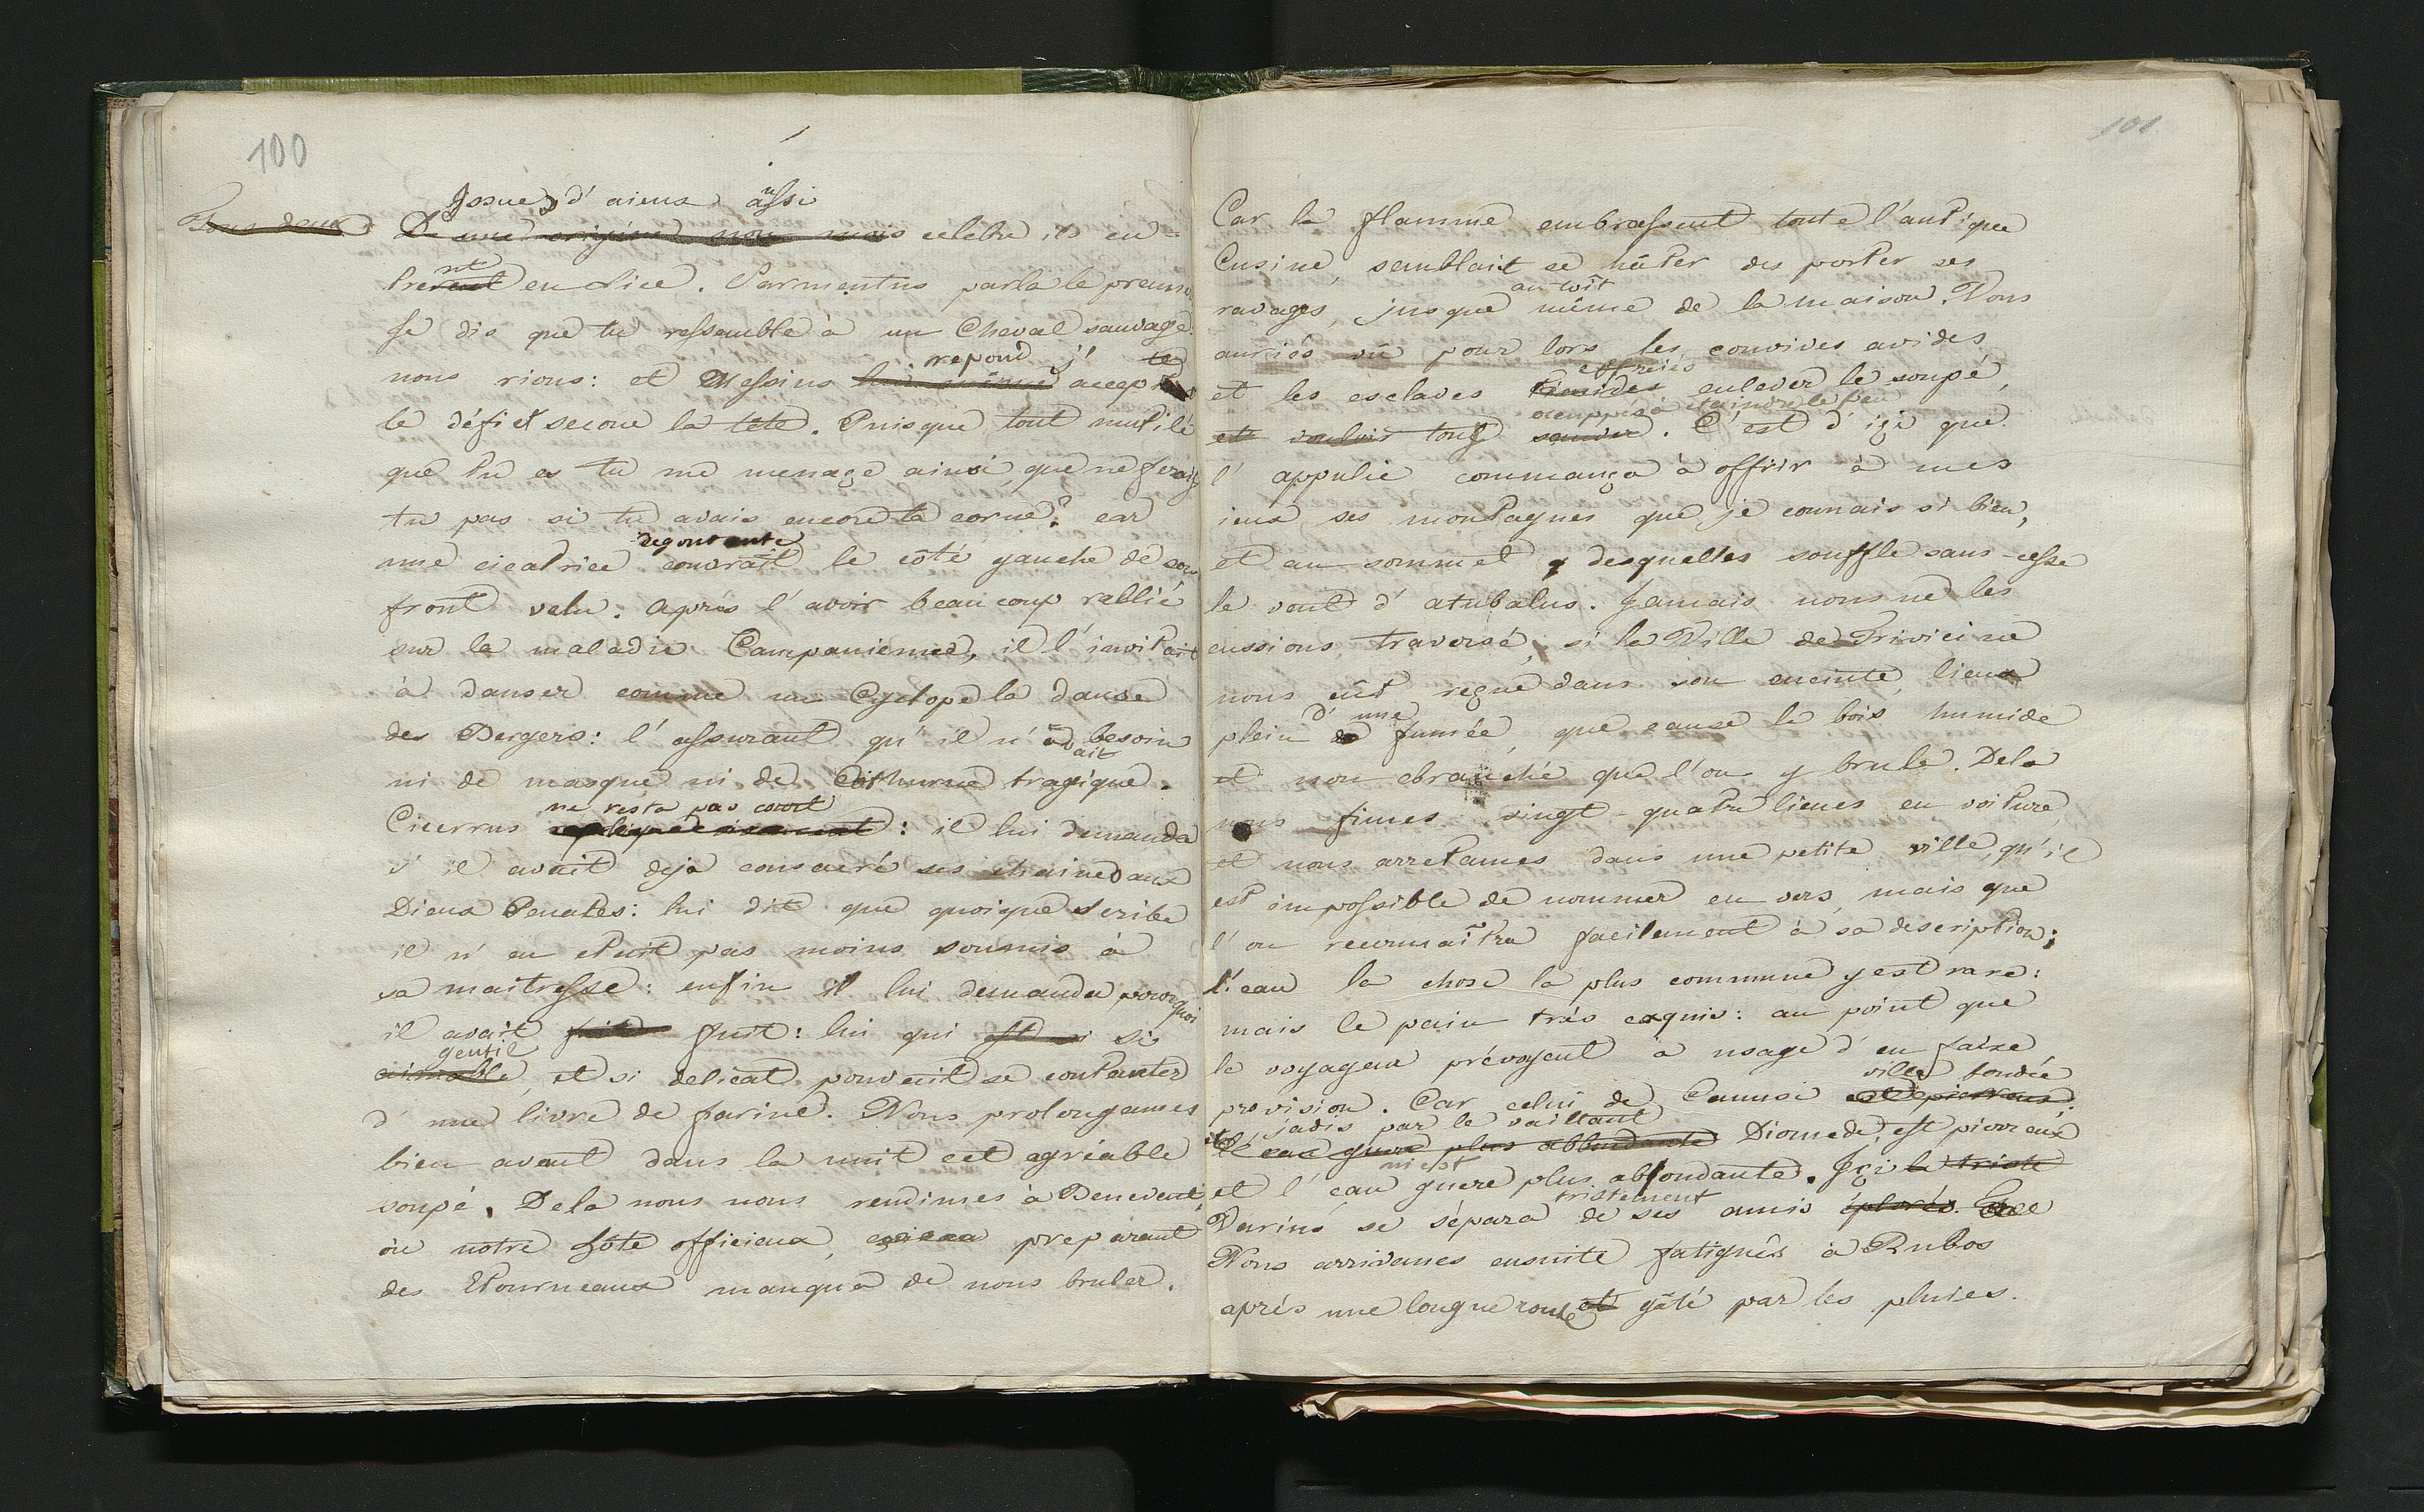 100
Issues d'aieux aussi
Tous deux De une origine non mais celebre ils en-
trerent nt en Lice. Sarmentus parla le premie
je dis que tu ressemble à un Cheval sauvage.
repond j'
nous rions: et Messius lui même accepte
le défi et secoue la tête. Puisque tout mutilé
que tu es tu me menage ainsi, que ne ferais
tu pas si tu avais encore ta corne? car
degoutante
une cicatrice couvrait le côté gauche de son
front velu. Après l'avoir beaucoup rallié
sur la maladie Campanienne, il l'invitait
à danser comme un Cyclope la danse
des Bergers: l'assurant qu'il n'avait besoin
ni de masque ni de Cothurne tragique.
ne resta pas court
Cicerrus : il lui demanda
s'il avait deja consacré ses chaines aux
Dieux Penates: lui dit que quoique scribe
il n'en etait pas moins soumis à
sa maitresse: enfin il lui demanda pourquoi
il avait fuit: lui qui est si si
gentil
aimable, et si delicat pouvait se contenter
d'une livre de farine. Nous prolongames
bien avant dans la nuit cet agréable
soupé. Dela nous nous rendimes à Benevent,
ou notre hôte officieux, preparant
des Etourneaux manqua de nous bruler.
101
Car la flamme embrassant toute l'antique
Cusine, semblait se hâter des porter ses
au toit
ravages, jusque même de la maison. Vous
auriés vû pour lors les convives avides
effreiés
et les esclaves timides enlever le soupé,
occuppés à eteindre le feu
et vouloir tous sauver. C'est d'içi que
l'appulie commança à offrir à mes
ieux ses montagnes que je connais si bien,
et au sommet desquelles souffle sans-cesse
le vent d'atubalus. Jamais nous ne les
eussions traversé, si la Ville de Trivicine
nous eût reçue dans son enceinte, lieux
d'une
plein de fumée, que cause le bois humide
et non ebranché que l'on y brule. Dela
nous fimes vingt-quatre lieues en voiture
et nous arretames dans une petite ville, qu'il
est impossible de nommer en vers, mais que
l'on reconnaîtra facilement à sa description;
l'eau la chose la plus commune y est rare:
mais le pain très exquis: au point que
le voyageur prévoyent à usage d'en faire
ville fondée
provision. Car celui de Canusi est pierreux;
jadis par le vaillant
et l'eau guere plus abbondante Diomede, est pierreux
n'est
et l'eau guere plus abbondante. Içi la triste
tristement
Varius se sépara de ses amis éplorés.
Nous arrivames ensuite fatigués à Rubos
après une longue route et gâté par les pluies.